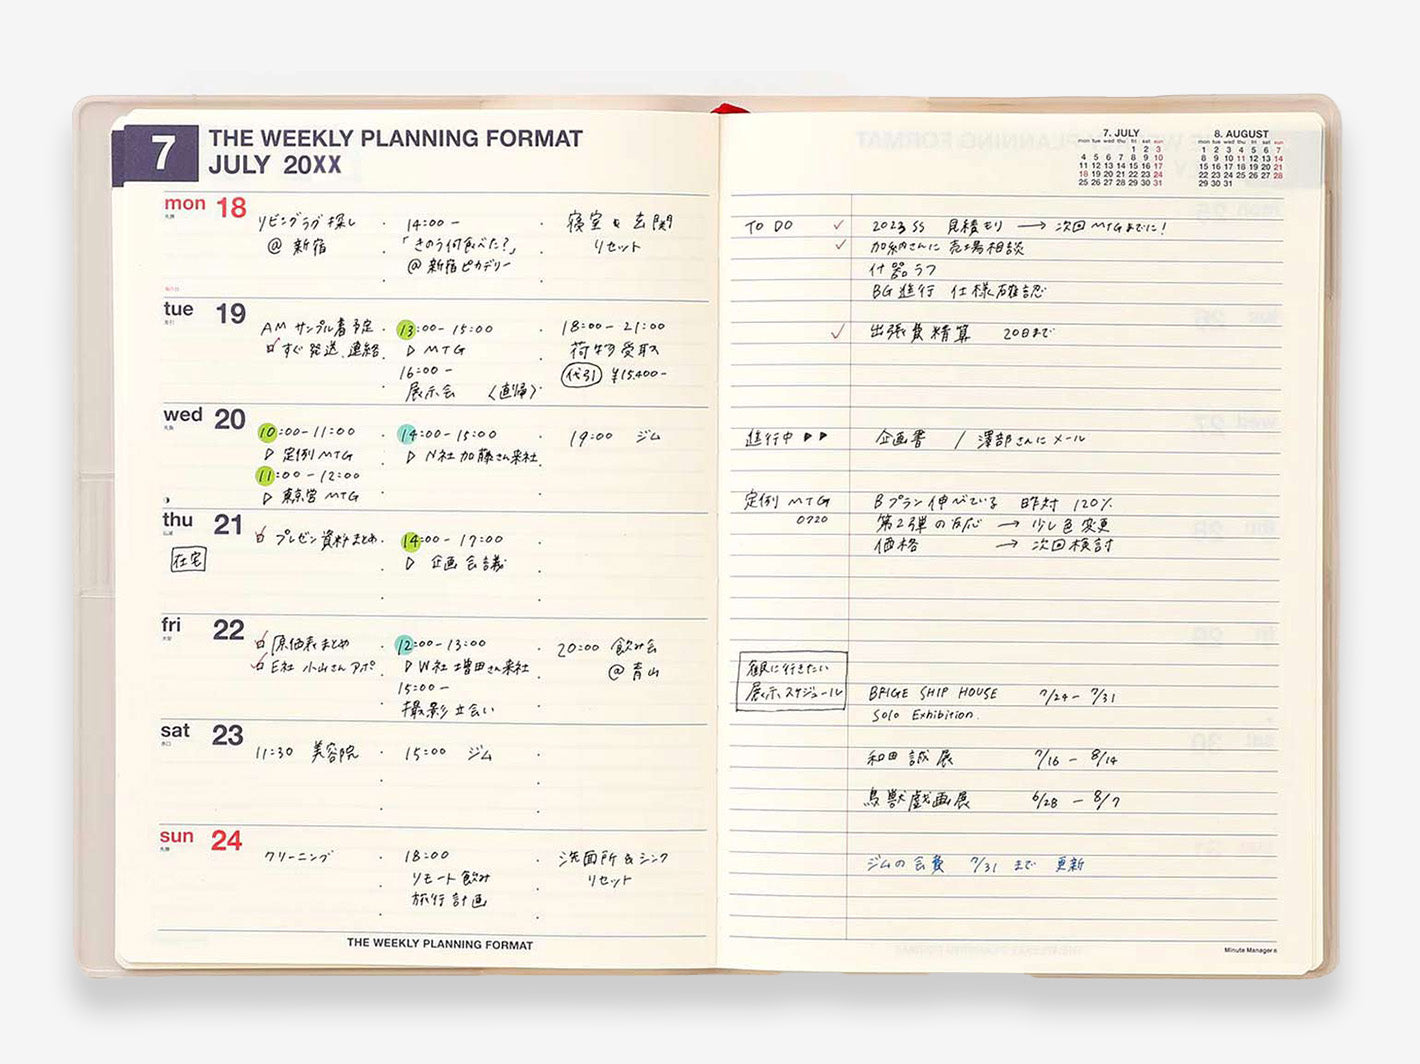 7
THE WEEKLY PLANNING FORMAT
JULY 20XX
mon 18
リビングラグ探し
@ 新宿
14:00 –
「きのう何食べた?」
@ 新宿ピカデリー
寝室 & 玄関
リセット
tue 19
AM サンプル着予定
すぐ発送、連絡
13:00 – 15:00
▷ MTG
16:00 –
展示会 〈直帰〉
18:00 – 21:00
荷物受取
代引 ¥15,400-
wed 20
10:00 – 11:00
▷ 定例MTG
11:00 – 12:00
▷ 東京営 MTG
14:00 – 15:00
▷ N社 加藤さん来社
19:00 ジム
thu 21
在宅
プレゼン資料まとめ
14:00 – 17:00
▷ 企画会議
fri 22
原価表まとめ
E社 小山さんアポ
12:00 – 13:00
▷ W社 増田さん来社
15:00 –
撮影立会い
20:00 飲み会
@ 青山
sat 23
11:30 美容院
15:00 ジム
sun 24
クリーニング
18:00
リモート飲み
旅行計画
洗面所 & シンク
リセット
THE WEEKLY PLANNING FORMAT
7. JULY
mon tue wed thu fri sat sun
1 2 3
4 5 6 7 8 9 10
11 12 13 14 15 16 17
18 19 20 21 22 23 24
25 26 27 28 29 30 31
8. AUGUST
mon tue wed thu fri sat sun
1 2 3 4 5 6 7
8 9 10 11 12 13 14
15 16 17 18 19 20 21
22 23 24 25 26 27 28
29 30 31
TO DO ✓ 2023 SS 見積もり → 次回MTGまでに!
✓ 加納さんに売場相談
什器ラフ
BG進行 仕様確認
✓ 出張費精算 20日まで
進行中 ▶▶ 企画書 / 澤部さんにメール
定例 MTG Bプラン伸べている 昨対 120%
0720 第2弾の反応 → 少し色変更
価格 → 次回検討
観に行きたい
展示スケジュール BRIGE SHIP HOUSE 7/24 – 7/31
Solo Exhibition.
和田誠展 7/16 – 8/14
鳥獣戯画展 6/28 – 8/7
ジムの会費 7/31 まで 更新
Minute Manager